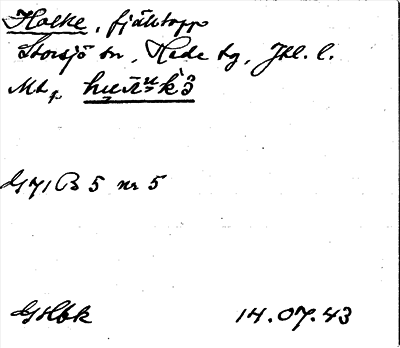 Holke, fjälltopp
Storsjö sn, Hede tg, Jtl. l.
Mtf
G 71 B 5 nr 5
GHbk 14.07.43